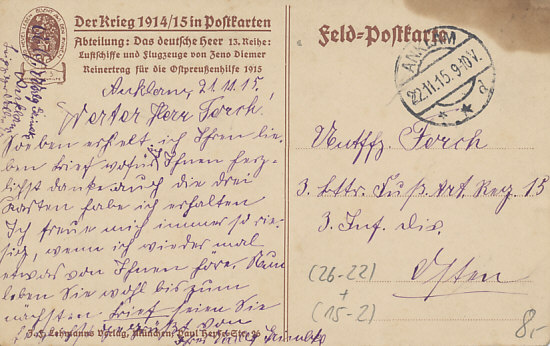 Der Krieg 1914/15 in Postkarten
Abteilung: Das deutsche Heer 13. Reihe:
Luftschiffe und Flugzeuge von Zeno Diemer
Reinertrag für die Ostpreußenhilfe 1915
Anklam, 21.11.15.
Werter Herr Torch.
Soeben erhielt ich Ihren lie-
ben Brief wofür Ihnen herz-
lichst danke auch die drei
Karten habe ich erhalten
Ich freue mich immer so rie-
sig, wenn ich wieder mal
etwas von Ihnen höre. Nun
leben Sie wohl bis zum
nächsten Brief seien Sie
gegrüßt von
J. F. Lehmanns Verlag, München, Paul Heyse-Str. 26
Feld-Postkarte
ANKLAM
22.11.15.9-10V.
Untffz. Torch
3. Battr. Fuß. Art. Reg. 15
3. Inf. Div.
Osten
(26-22)
+
(15-2)
8,-